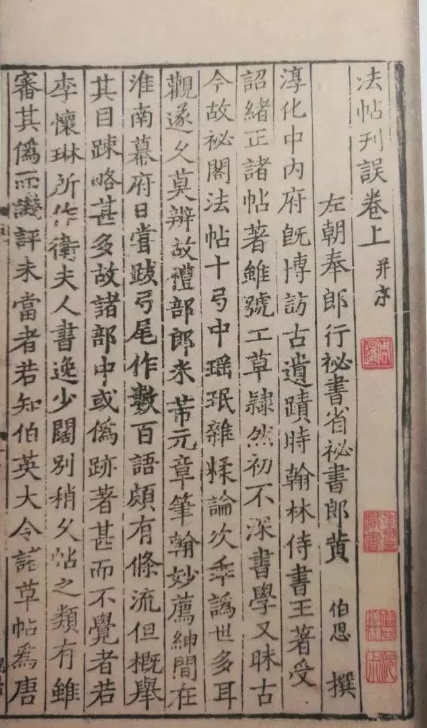 法帖刊誤卷上 并序
左朝奉郎行祕書省祕書郎黄 伯思 撰
淳化中内府既博訪古遺蹟時翰林侍書王著受
詔緒正諸帖著雖號工草隸然初不深書學又昧古
今故祕閣法帖十弓中瑶珉雜糅論次乖譌世多耳
觀遂久莫辨故禮部郎米芾元章筆翰妙薦紳間在
淮南幕府日嘗跋弓尾作數百語頗有條流但概舉
其目踈略甚多故諸部中或僞跡著甚而不覺者若
李懷琳所作衛夫人書逸少闊別稍久帖之類有雖
審其僞而譏評未當者若知伯英大令諸草帖爲唐